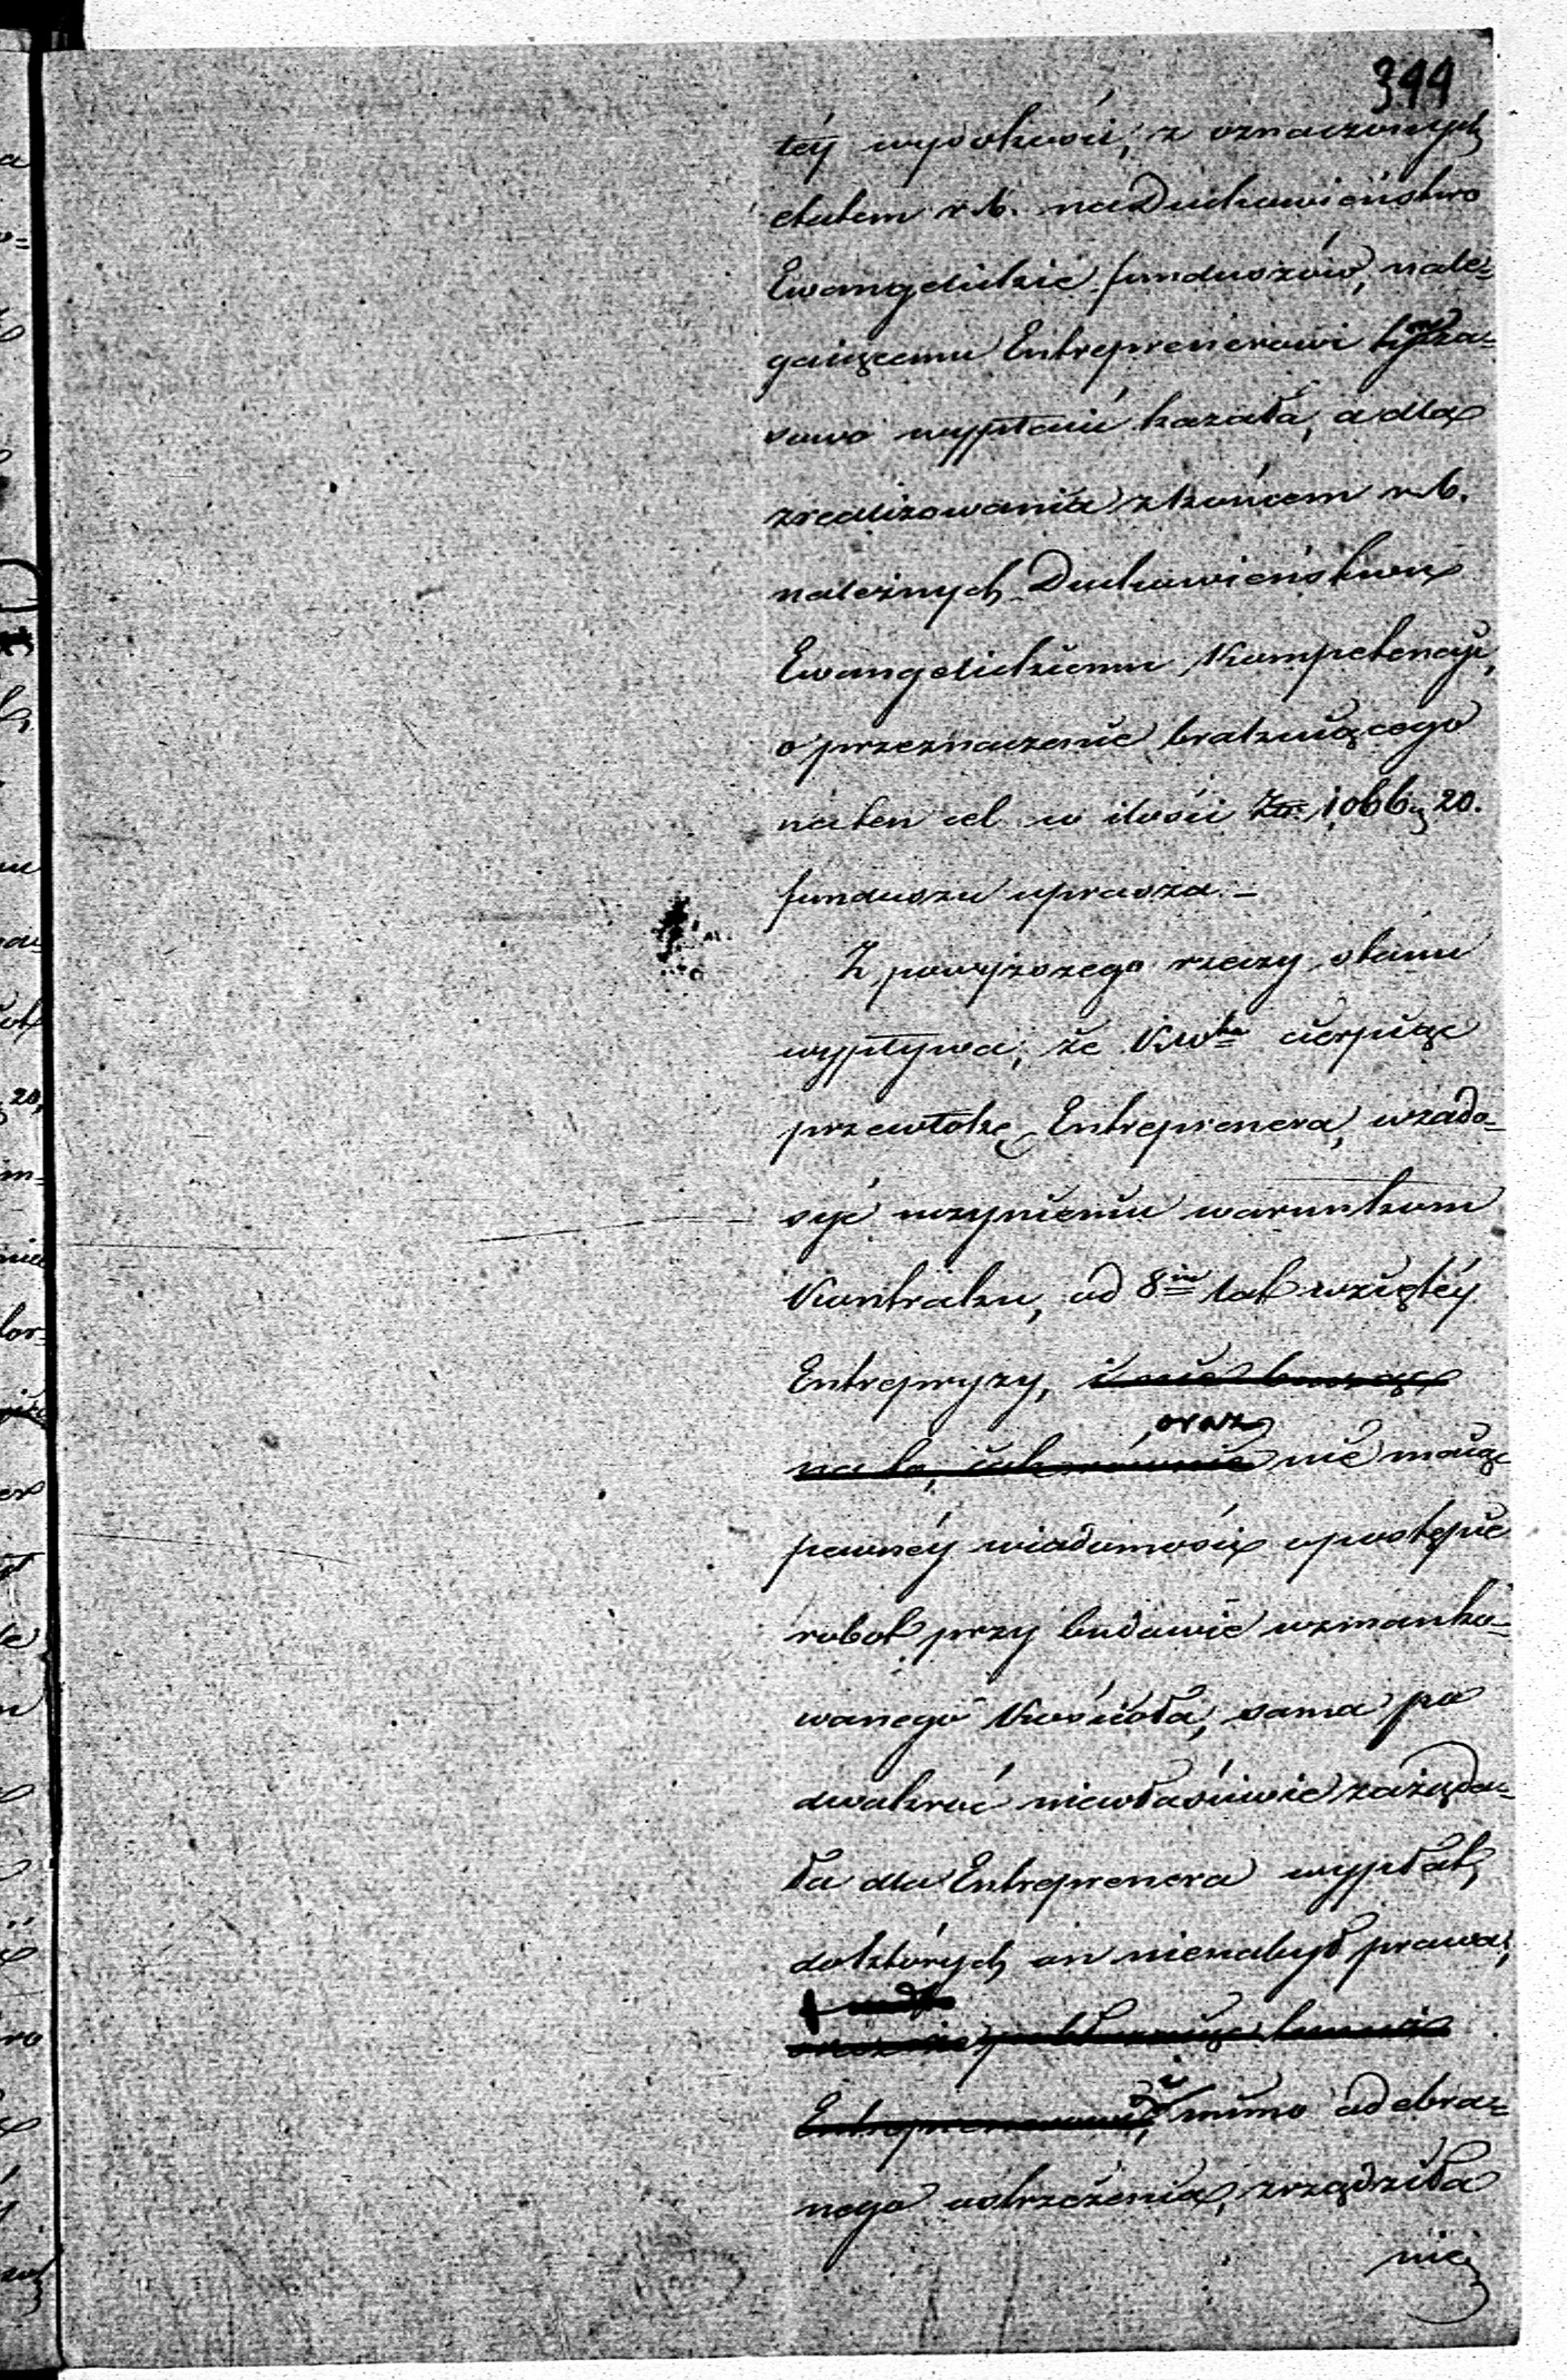 344
téy wysokości, z oznaczonych
etatem r. b. na Duchowieństwo
Ewangelickie funduszów, nale=
gaiącemu Entreprenerowi tymcza=
sowo wypłacić kazała, a dla
zrealizowania z końcem r. b.
należnych Duchowieństwu
Ewangelickiemu Kompetencyi,
o przeznaczenie brakuiącego
na ten cel w ilości Zł. 1066 20.
funduszu uprasza. –
Z powyższego rzeczy stanu
wypływa, że Kom cierpiąc
przewłokę Entreprenera, w zado=
syć uczynieniu warunkom
Kontraktu, od 8iu lat wziętéy
Entrepryzy, i nie bacząc
oraz
na to, nie maiąc
pewnéy wiadomości o postępie
robot przy budowie wzmianko=
wanego Kościoła, sama po
dwakroć niewłaściwie zażąda=
ła dla Entreprenera wypłat,
do których on nienabył prawa,
Entreprenerowi, i mimo odebra=
nego ostrzeżenia, zrządziła
nie